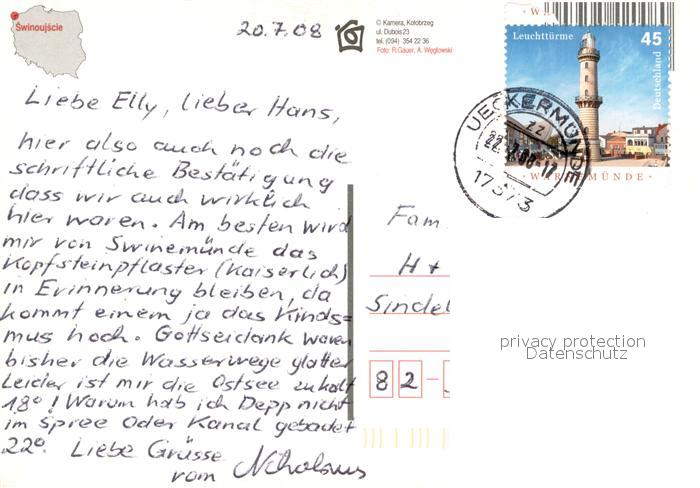 Świnoujście
20.7.08
© Kamera, Kołobrzeg
ul. Dubois 23
tel. (094) 354 22 36
Foto: R.Gauer, A. Węglowski
Leuchttürme
45
Deutschland
WARNEMÜNDE
UECKERMÜNDE
ZZ
22.7.08
17373
Liebe Elly, lieber Hans,
hier also auch noch die
schriftliche Bestätigung
dass wir auch wirklich
hier waren. Am besten wird
mir von Swinemünde das
Kopfsteinpflaster (Kaiserlich)
in Erinnerung bleiben, da
kommt einem ja das Kinds=
mus hoch. Gottseidank waren
bisher die Wasserwege glatter
Leider ist mir die Ostsee zu kalt
18°! Warum hab ich Depp nicht
im Spree Oder Kanal gebadet
22°. Liebe Grüsse
vom Nikolaus
Fam.
H +
Sindel
82-
privacy protection
Datenschutz